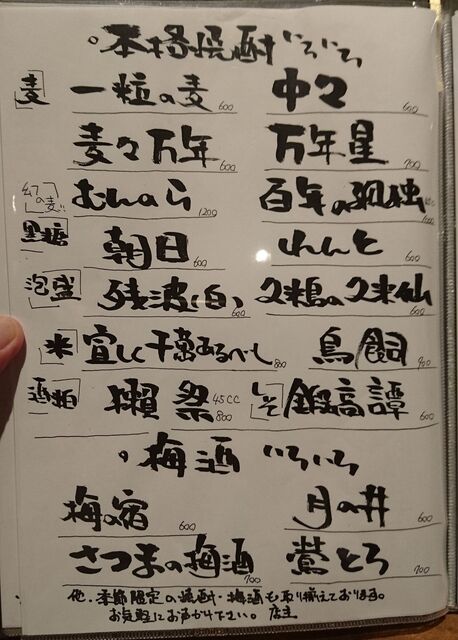 。本格焼酎いろいろ
麦 一粒の麦 600 中々 600
麦々万年 600 万年星 700
幻の麦!! むんのら 1200 百年の孤独
黒糖 朝日 600 れんと 600
泡盛 残波(白) 600 久米島の久米仙 600
米 宜しく千萬あるべし 800 鳥飼 900
酒粕 獺祭 45cc 800 しそ 鍛高譚 600
。梅酒 いろいろ
梅の宿 600 月の井 600
さつまの梅酒 700 鶯とろ 700
他、季節限定の焼酎・梅酒も取り揃えております。
お気軽にお声がけ下さい。 店主